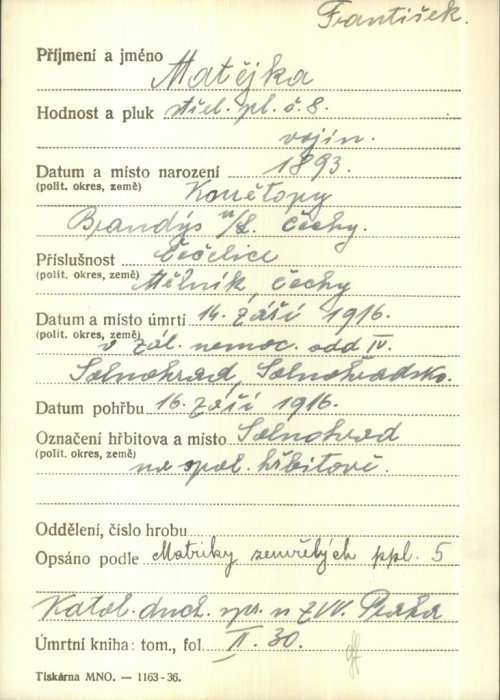 František.
Příjmení a jméno Matějka
Hodnost a pluk střel. pl. č. 8.
vojín.
Datum a místo narození 1893.
(polit. okres, země) Konětopy
Brandýs n/L. Čechy.
Příslušnost Čečelice
(polit. okres, země) Mělník, Čechy
Datum a místo úmrtí 14. září 1916.
(polit. okres, země) v zál. nemoc. odd IV.
Solnohrad, Solnohradsko.
Datum pohřbu 16. září 1916.
Označení hřbitova a místo Solnohrad
(polit. okres, země) na spol. hřbitově.
Oddělení, číslo hrobu
Opsáno podle Matriky zemřelých ppl. 5
Katol. duch. spr. u ZVV. Praha
Úmrtní kniha: tom., fol. II. 30.
Tiskárna MNO. — 1163-36.